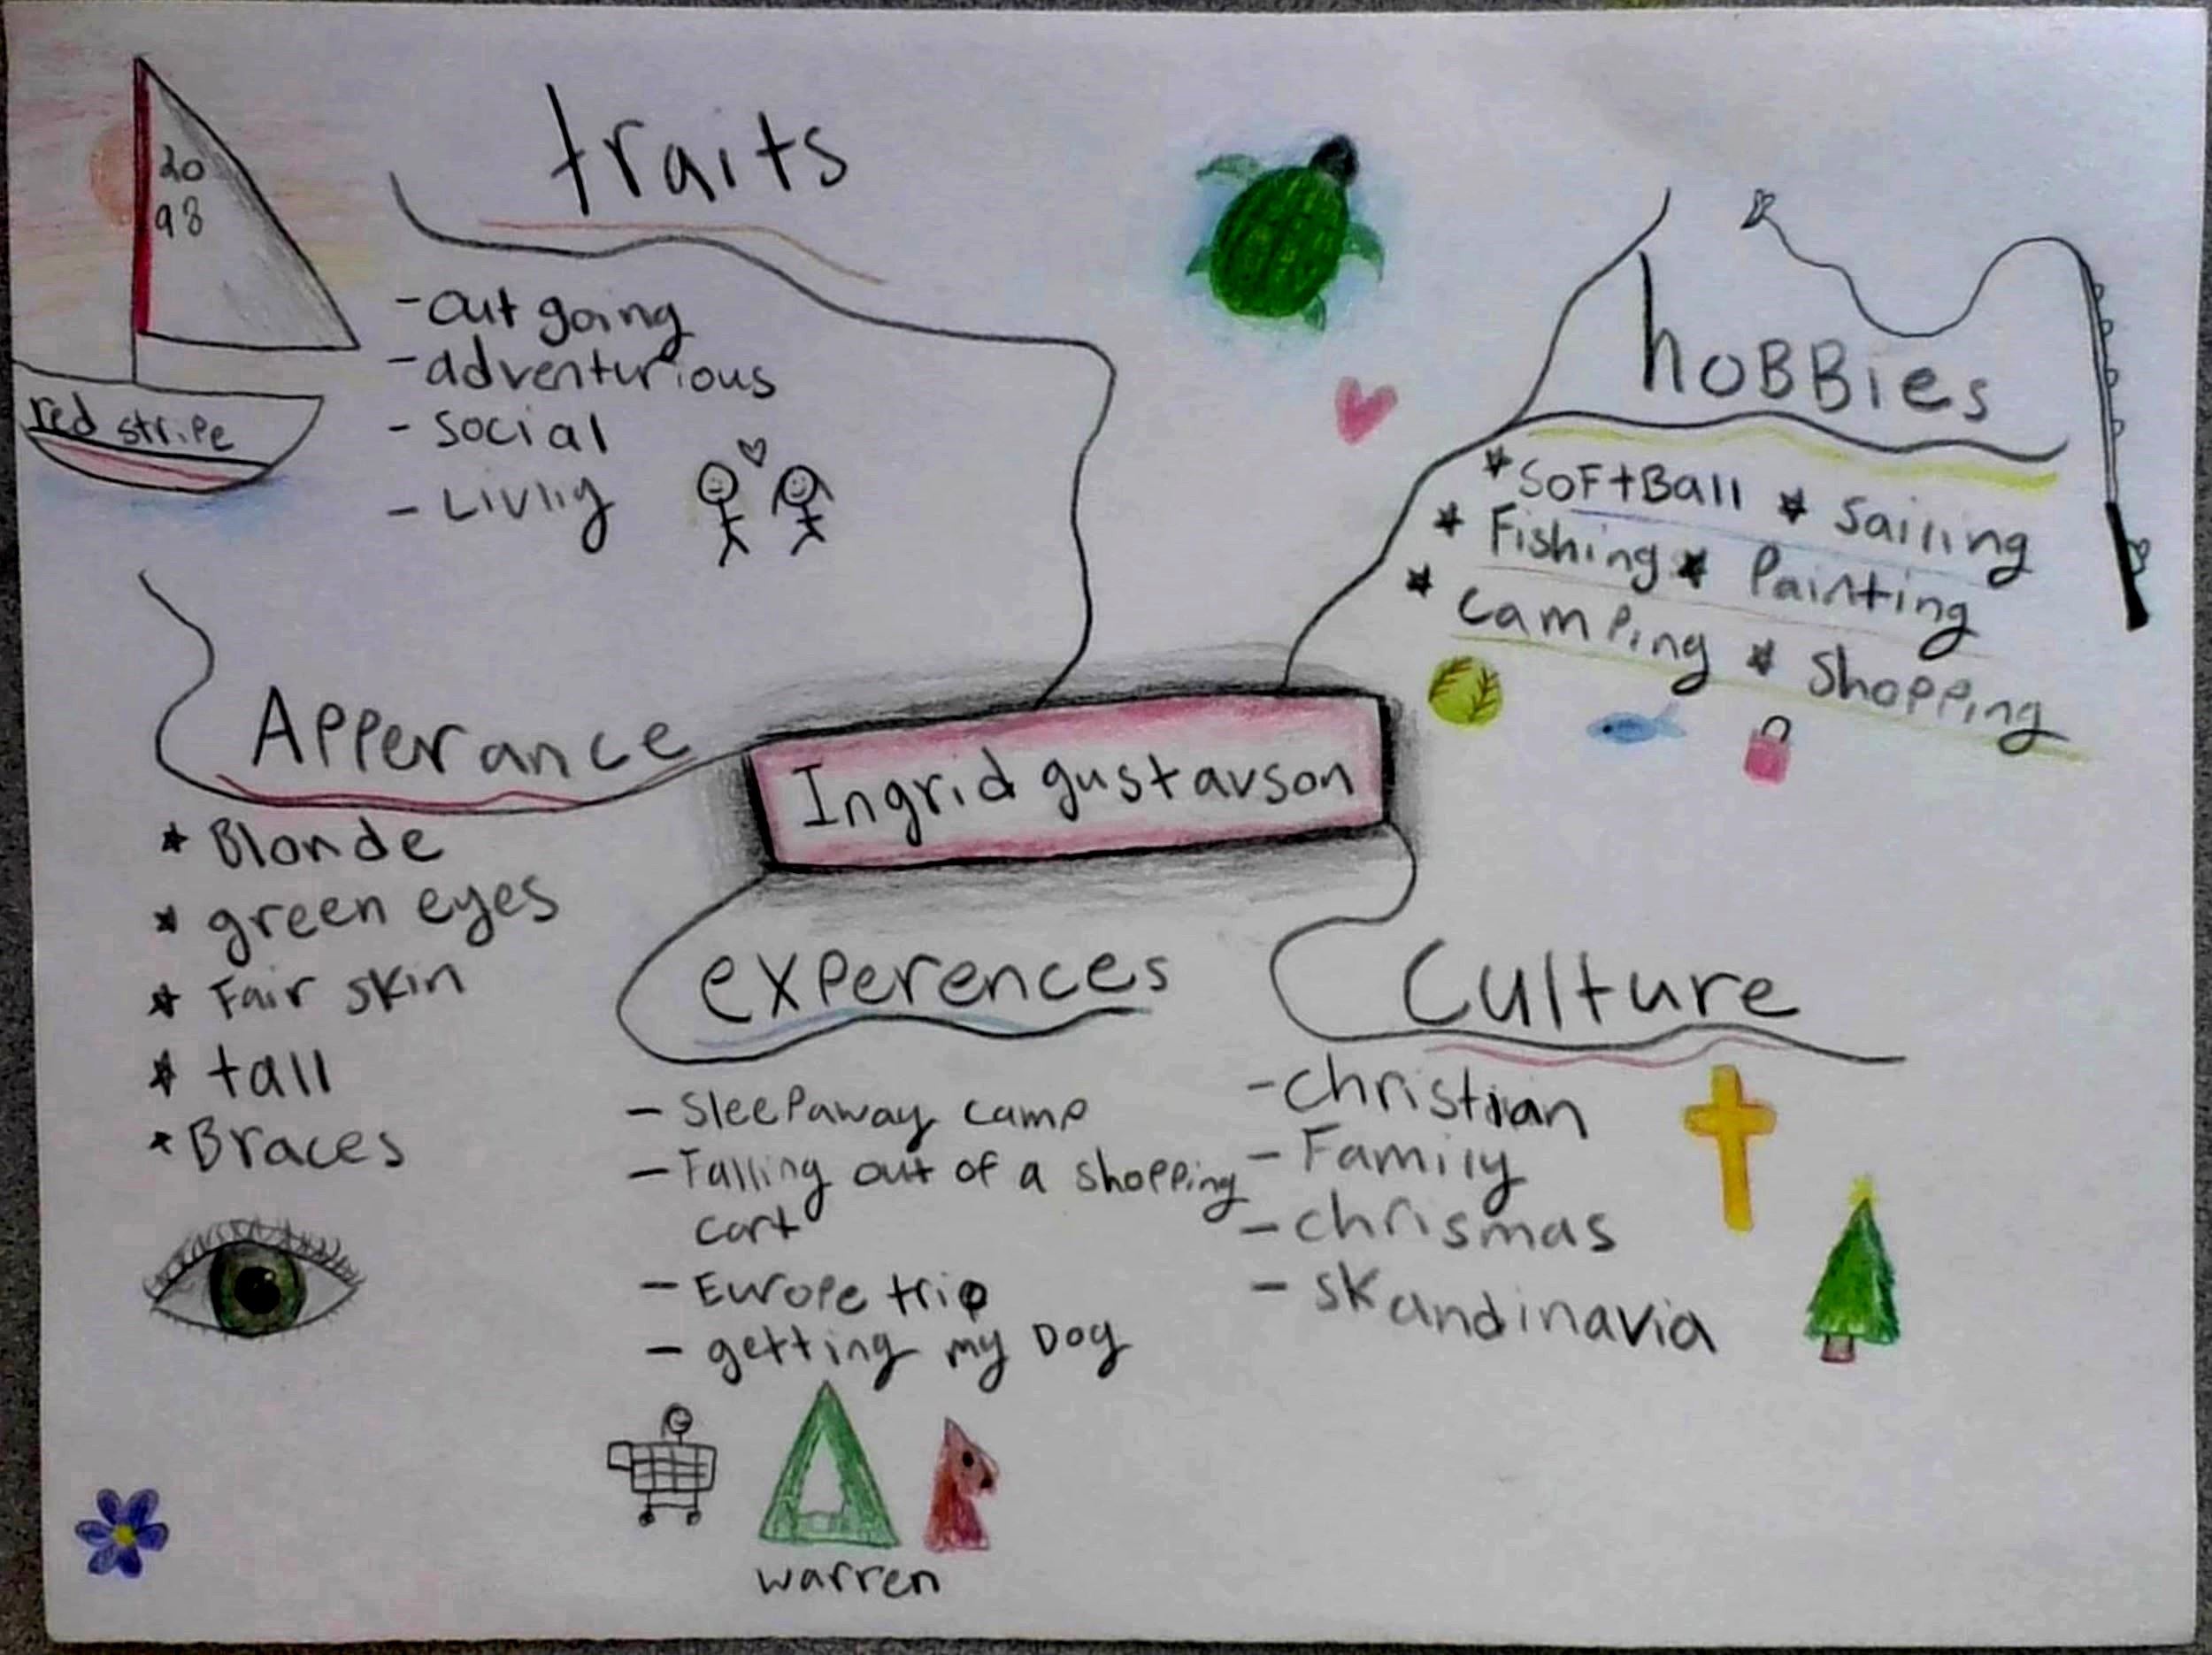 20
98
red stripe
traits
-out going
-adventurious
-social
-Livlig
hoBBies
*SoFtBall * Sailing
* Fishing * Painting
* camping * Shopping
Apperance
* Blonde
* green eyes
* Fair skin
* tall
*Braces
Ingrid gustavson
experences
- Sleepaway camp
- Falling out of a shopping
cart
- Europe trip
- getting my Dog
warren
Culture
-christian
-Family
-chrismas
- skandinavia